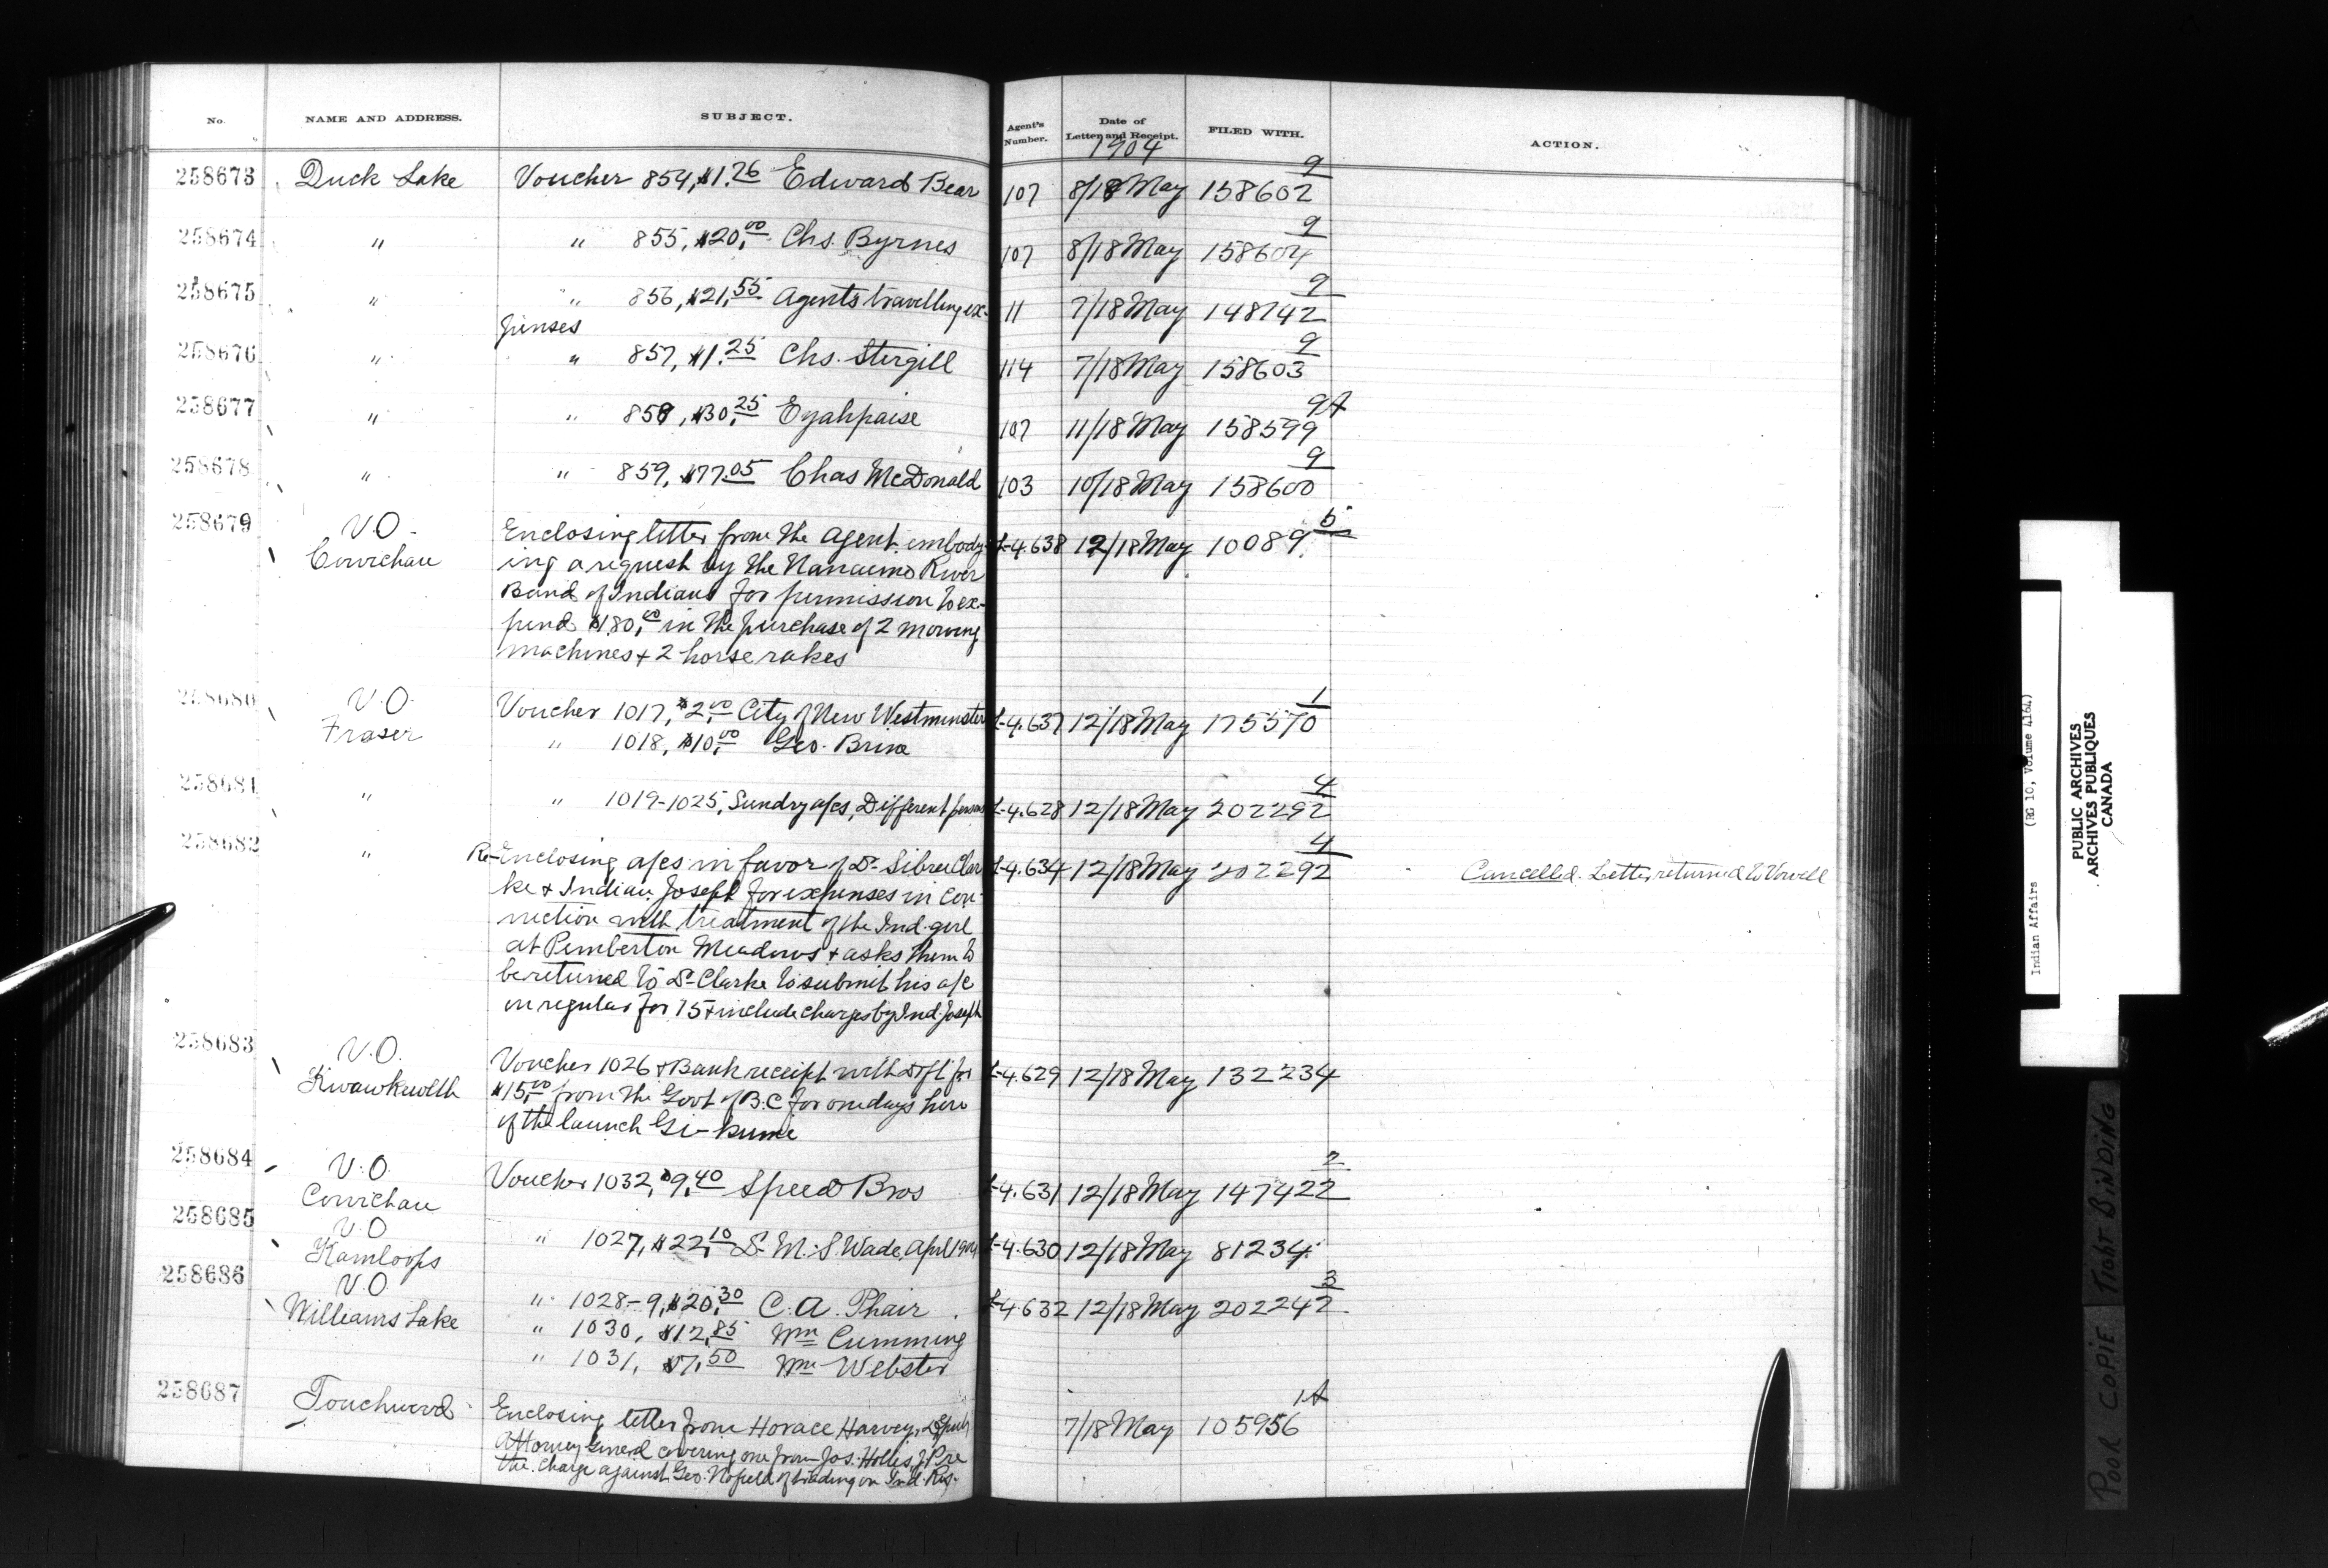 No. NAME AND ADDRESS. SUBJECT. Agent's Number. Date of Letter and Receipt. FILED WITH. ACTION.
1904
258673 Duck Lake Voucher 854, $1.26 Edward Bear 107 8/18 May 158602 9
258674 " " 855, $20.00 Chs. Byrnes 107 8/18 May 158604 9
258675 " " 856, $21.55 Agents travelling ex- 11 7/18 May 148742 9
penses
258676 " " 857, $1.25 Chs. Stergill 114 7/18 May 158603 9
258677 " " 858, $30.25 Eyahpaise 107 11/18 May 158599 9A
258678 " " 859, $77.05 Chas McDonald 103 10/18 May 158600 9
258679 V.O. Enclosing letter from the Agent embody- L-4.638 12/18 May 10089 5
Cowichan ing a request by the Nanaimo River
Band of Indians for permission to ex-
pend $180.00 in the purchase of 2 mowing
machines & 2 horse rakes
258680 V.O. Voucher 1017, $2.00 City of New Westminster L-4.637 12/18 May 175570 1
Fraser " 1018, $10.00 Geo. Brine
258681 " " 1019-1025, Sundry a/cs, Different persons L-4.628 12/18 May 202292 4
258682 " Re-Enclosing a/cs in favor of Dr. Sibree Clar L-4.634 12/18 May 202292 4 Cancelled. Letter returned to Vowell
ke & Indian Joseph for expenses in con-
nection with treatment of the Ind. girl
at Pemberton Meadows & asks them to
be returned to Dr. Clarke to submit his a/c
on regular for 75 & include charges by Ind. Joseph
258683 V.O. Voucher 1026 & Bank receipt with Dft for L-4.629 12/18 May 132234
Kwawkewlth $15.00 from the Govt of B.C for one days hire
of the launch Gi-kume
258684 V.O. Voucher 1032, $9.40 Speed Bros L-4.631 12/18 May 147422 2
Cowichan
258685 V.O. " 1027, $22.10 Dr. M. S. Wade, April 1904 L-4.630 12/18 May 81234
Kamloops
258686 V.O. " 1028-9, $20.30 C. A. Phair L-4.632 12/18 May 202242 3
Williams Lake " 1030, $12.85 Wm Cumming
" 1031, $7.50 Wm Webster
258687 Touchwood Enclosing letter from Horace Harvey, Deputy 7/18 May 105956 1A
Attorney General covering one from Jos. Hollis, J.P re
the charge against Geo. Nofield of trading on Ind. Res.
Indian Affairs (RG 10, Volume 4164)
PUBLIC ARCHIVES
ARCHIVES PUBLIQUES
CANADA
POOR COPIE TIGHT BINDING